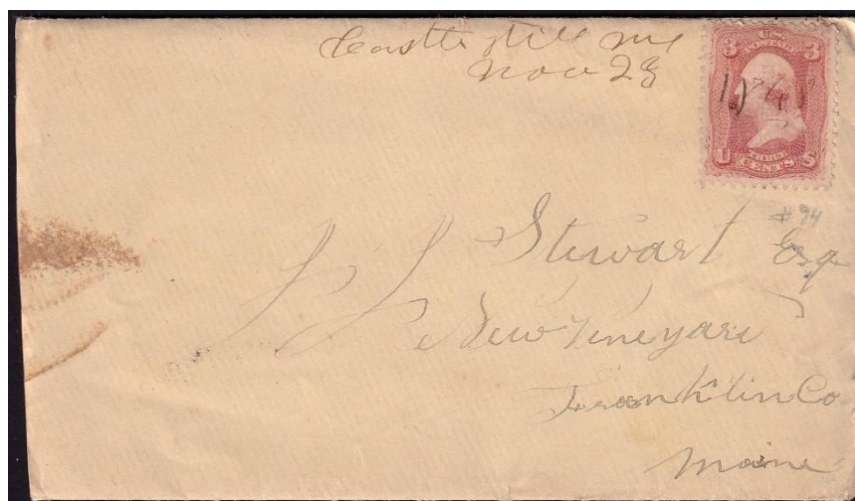 Castle Hill Me
Nov 28
3 U.S. 3
POSTAGE
U CENTS S
#94
Stewart Esq
New Vineyard
Franklin Co
Maine